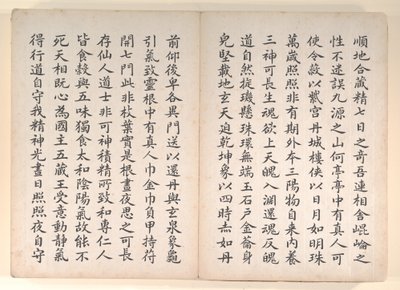 順地合藏精七日之奇吾連相舍崐崘之
性不迷誤九源之山何亭亭中有真人可
使令蔽以紫宫丹城樓俠以日月如明珠
萬歲照照非有期外本三陽物自來内養
三神可長生魂欲上天魄入淵還魂反魄
道自然旋璣懸珠環無端玉石戶金籥身
皃堅載地玄天迫乾坤象以四時赤如丹
前仰後卑各異門送以還丹與玄泉象龜
引氣致靈根中有真人巾金巾負甲持符
開七門此非枝葉實是根晝夜思之可長
存仙人道士非可神積精所致和專仁人
皆食穀與五味獨食太和陰陽氣故能不
死天相既心為國主五藏王受意動靜氣
得行道自守我精神光晝日照照夜自守